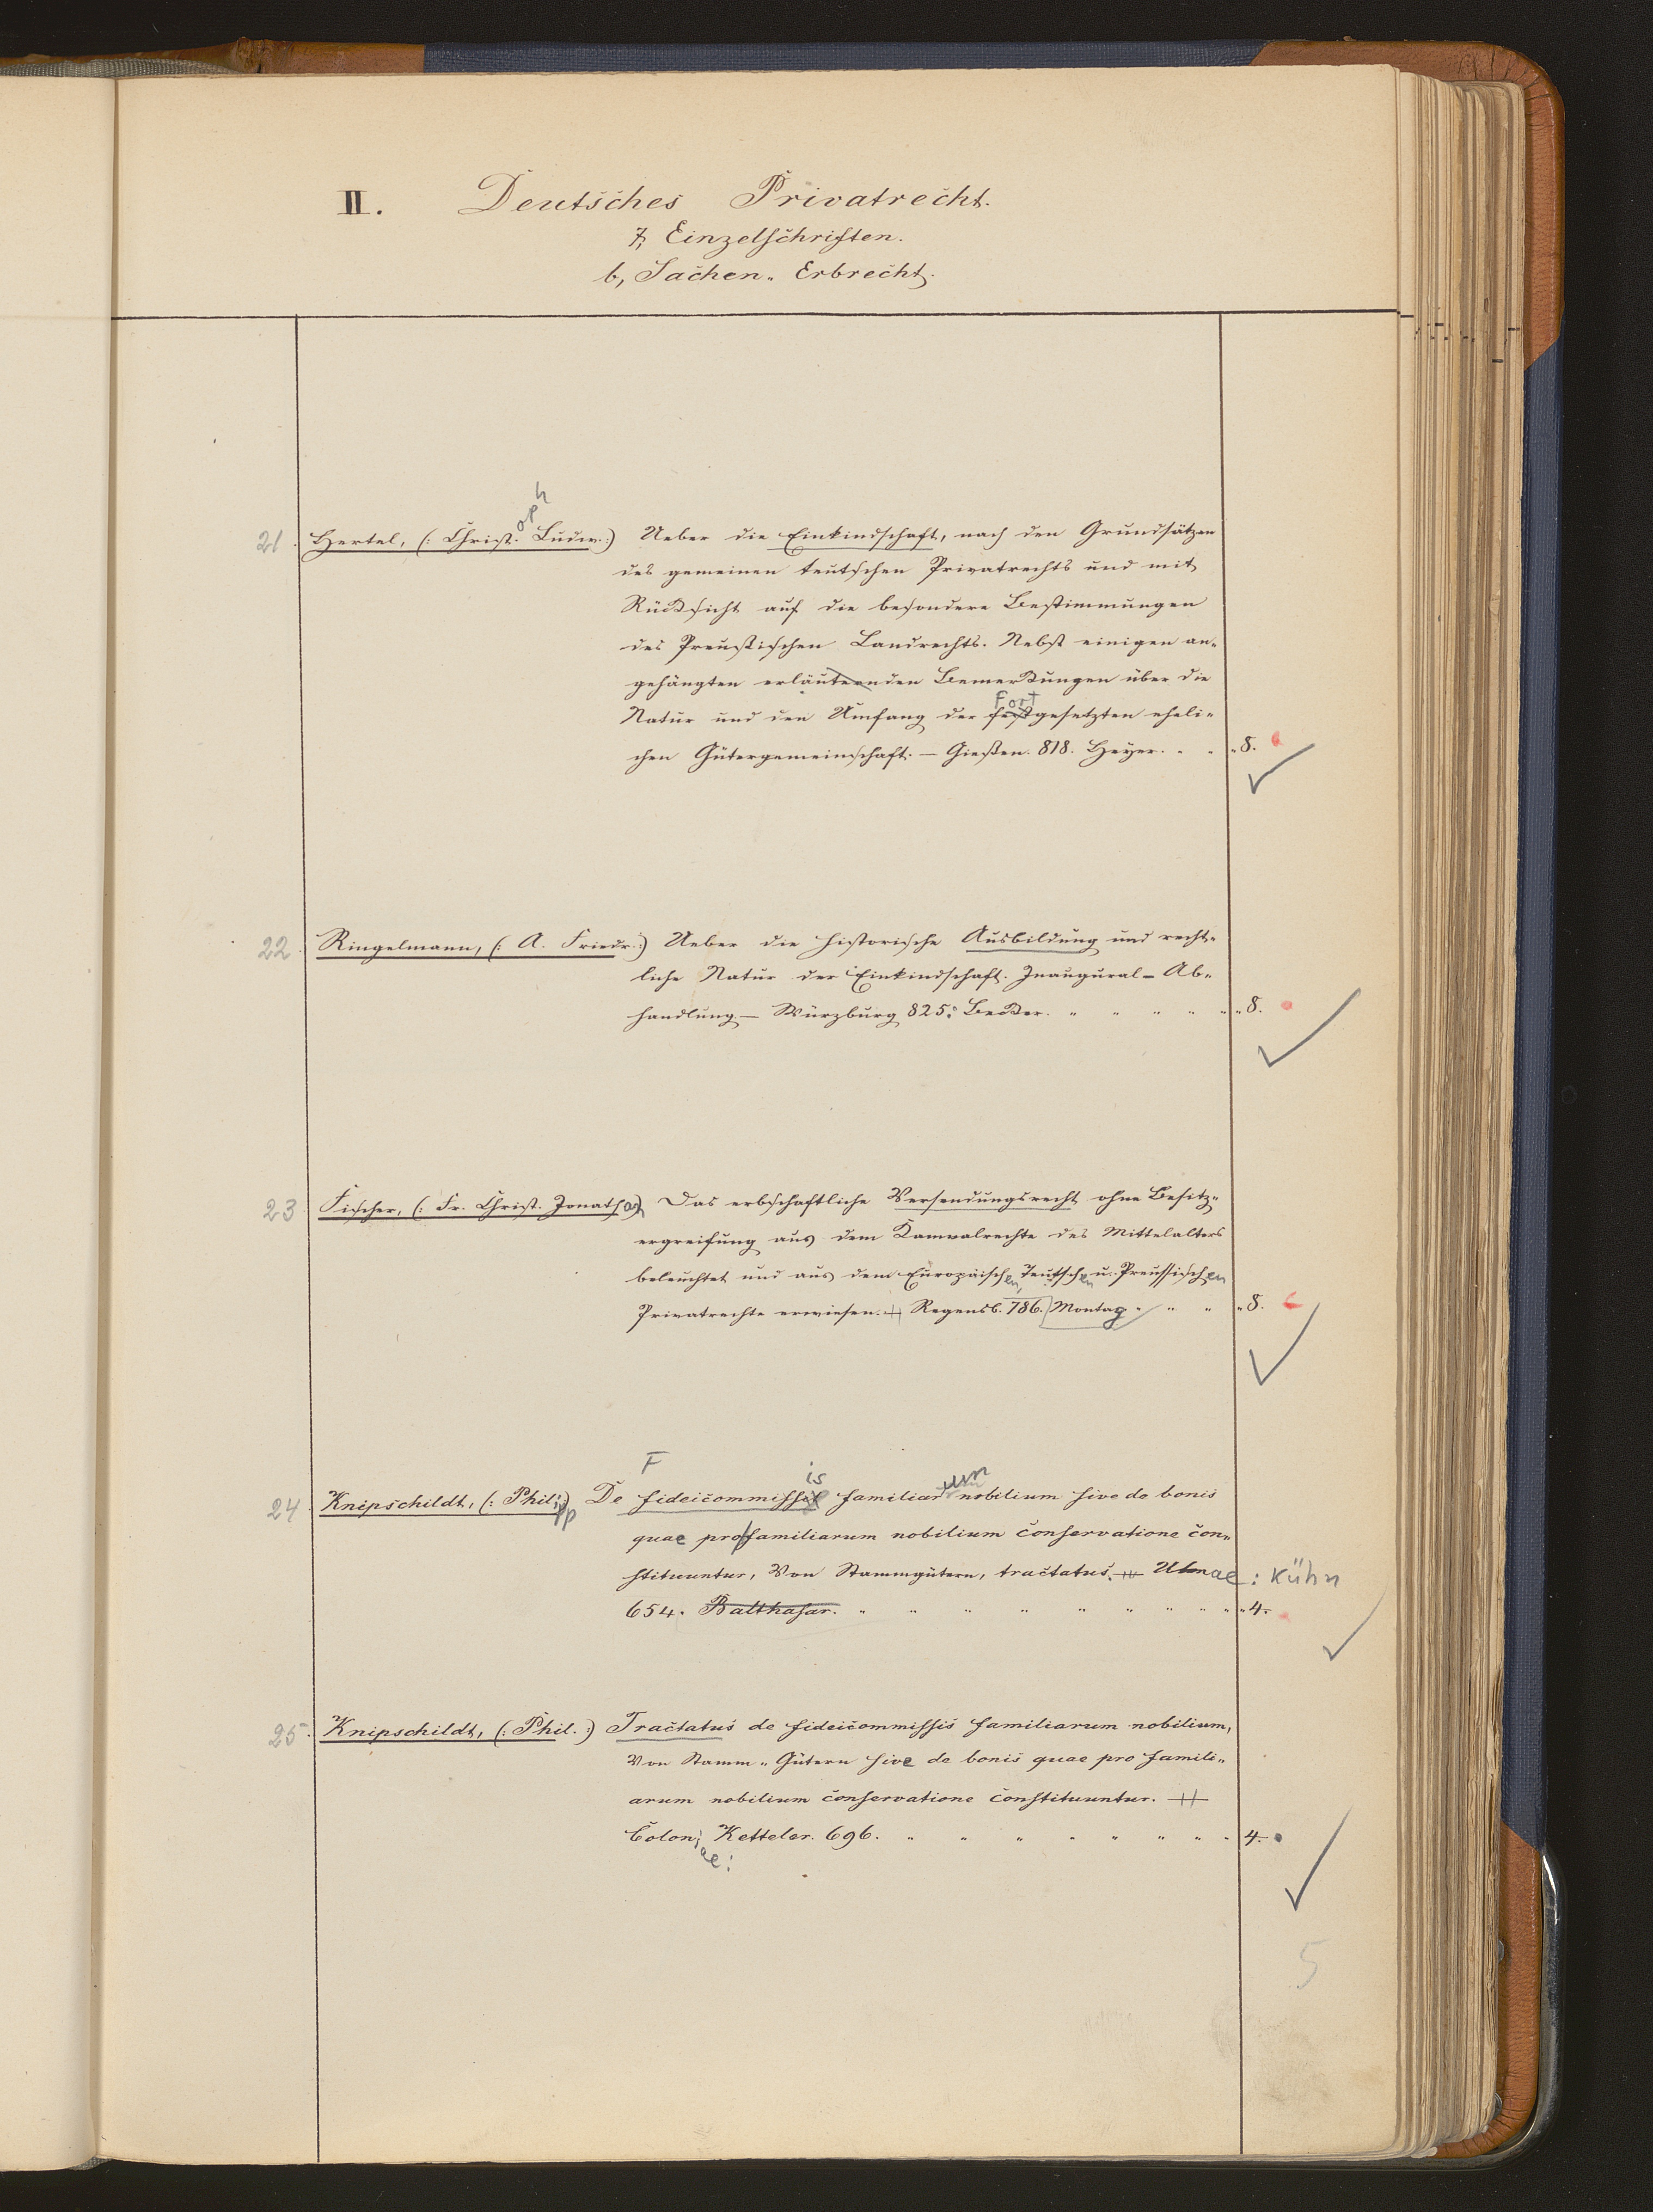 II. Deutsches Privatrecht.
7, Einzelschriften.
b, Sachen- Erbrecht.
21. Hertel, (: Christ.oph Ludw. :) Ueber die Einkindschaft, nach den Grundsätzen
des gemeinen teutschen Privatrechts und mit
Rücksicht auf die besondere Bestimmungen
des Preußischen Landrechts. Nebst einigen an-
gehängten erläuternden Bemerkungen über die
Natur und den Umfang der Fortgesetzten eheli-
chen Gütergemeinschaft. — Gießen. 818. Heyer. " " " 8.
22. Ringelmann, (: A. Friedr. :) Ueber die historische Ausbildung und recht-
liche Natur der Einkindschaft. Inaugural-Ab-
handlung — Würzburg 825. Becker. " " " " " " 8.
23 Fischer, (: Fr. Christ. Jonathan Das erbschaftliche Versendungsrecht ohne Besitz-
ergreifung aus dem Kameralrechte des Mittelalters
beleuchtet und aus dem Europäischen, Teutschen u. Preussischen
Privatrechte erwiesen. — Regensb. 786. Montag " " " " 8.
24 Knipschildt, (: Philipp De Fideicommissis familiarum nobilium sive de bonis
quae pro familiarum nobilium conservatione con-
stituuntur, Von Stammgütern, tractatus. — Ulmae: Kühn
654. Balthasar. " " " " " " " " " " 4.
25. Knipschildt, (: Phil. :) Tractatus de fideicommissis familiarum nobilium,
Von Stamm- Gütern sive de bonis quae pro famili-
arum nobilium conservatione constituuntur. —
Coloniae: Ketteler. 696. " " " " " " " " 4.
5